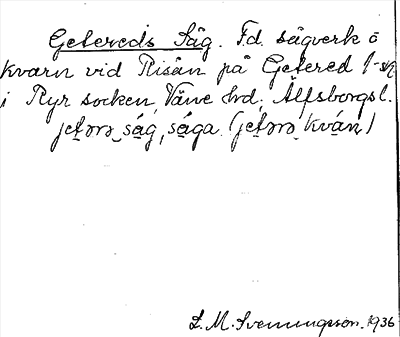 Getereds Såg. F.d. sågverk o
kvarn vid Risån på Getered
i Ryr socken, Väne hrd, Älfsborgsl.
jetərə såg, såga (jetərə kván)
L. M. Svenungsson. 1936